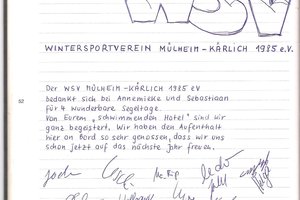 WSV
WINTERSPORTVEREIN MÜLHEIM-KÄRLICH 1985 e.V.
DER WSV MÜLHEIM-KÄRLICH 1985 eV
bedankt sich bei Annemieke und Sebastiaan
für 4 wunderbare Segeltage.
Von Eurem „schwimmenden Hotel" sind wir
ganz begeistert. Wir haben den Aufenthalt
hier an Bord so sehr genossen, dass wir uns
schon jetzt auf das nächste Jahr freuen.
52